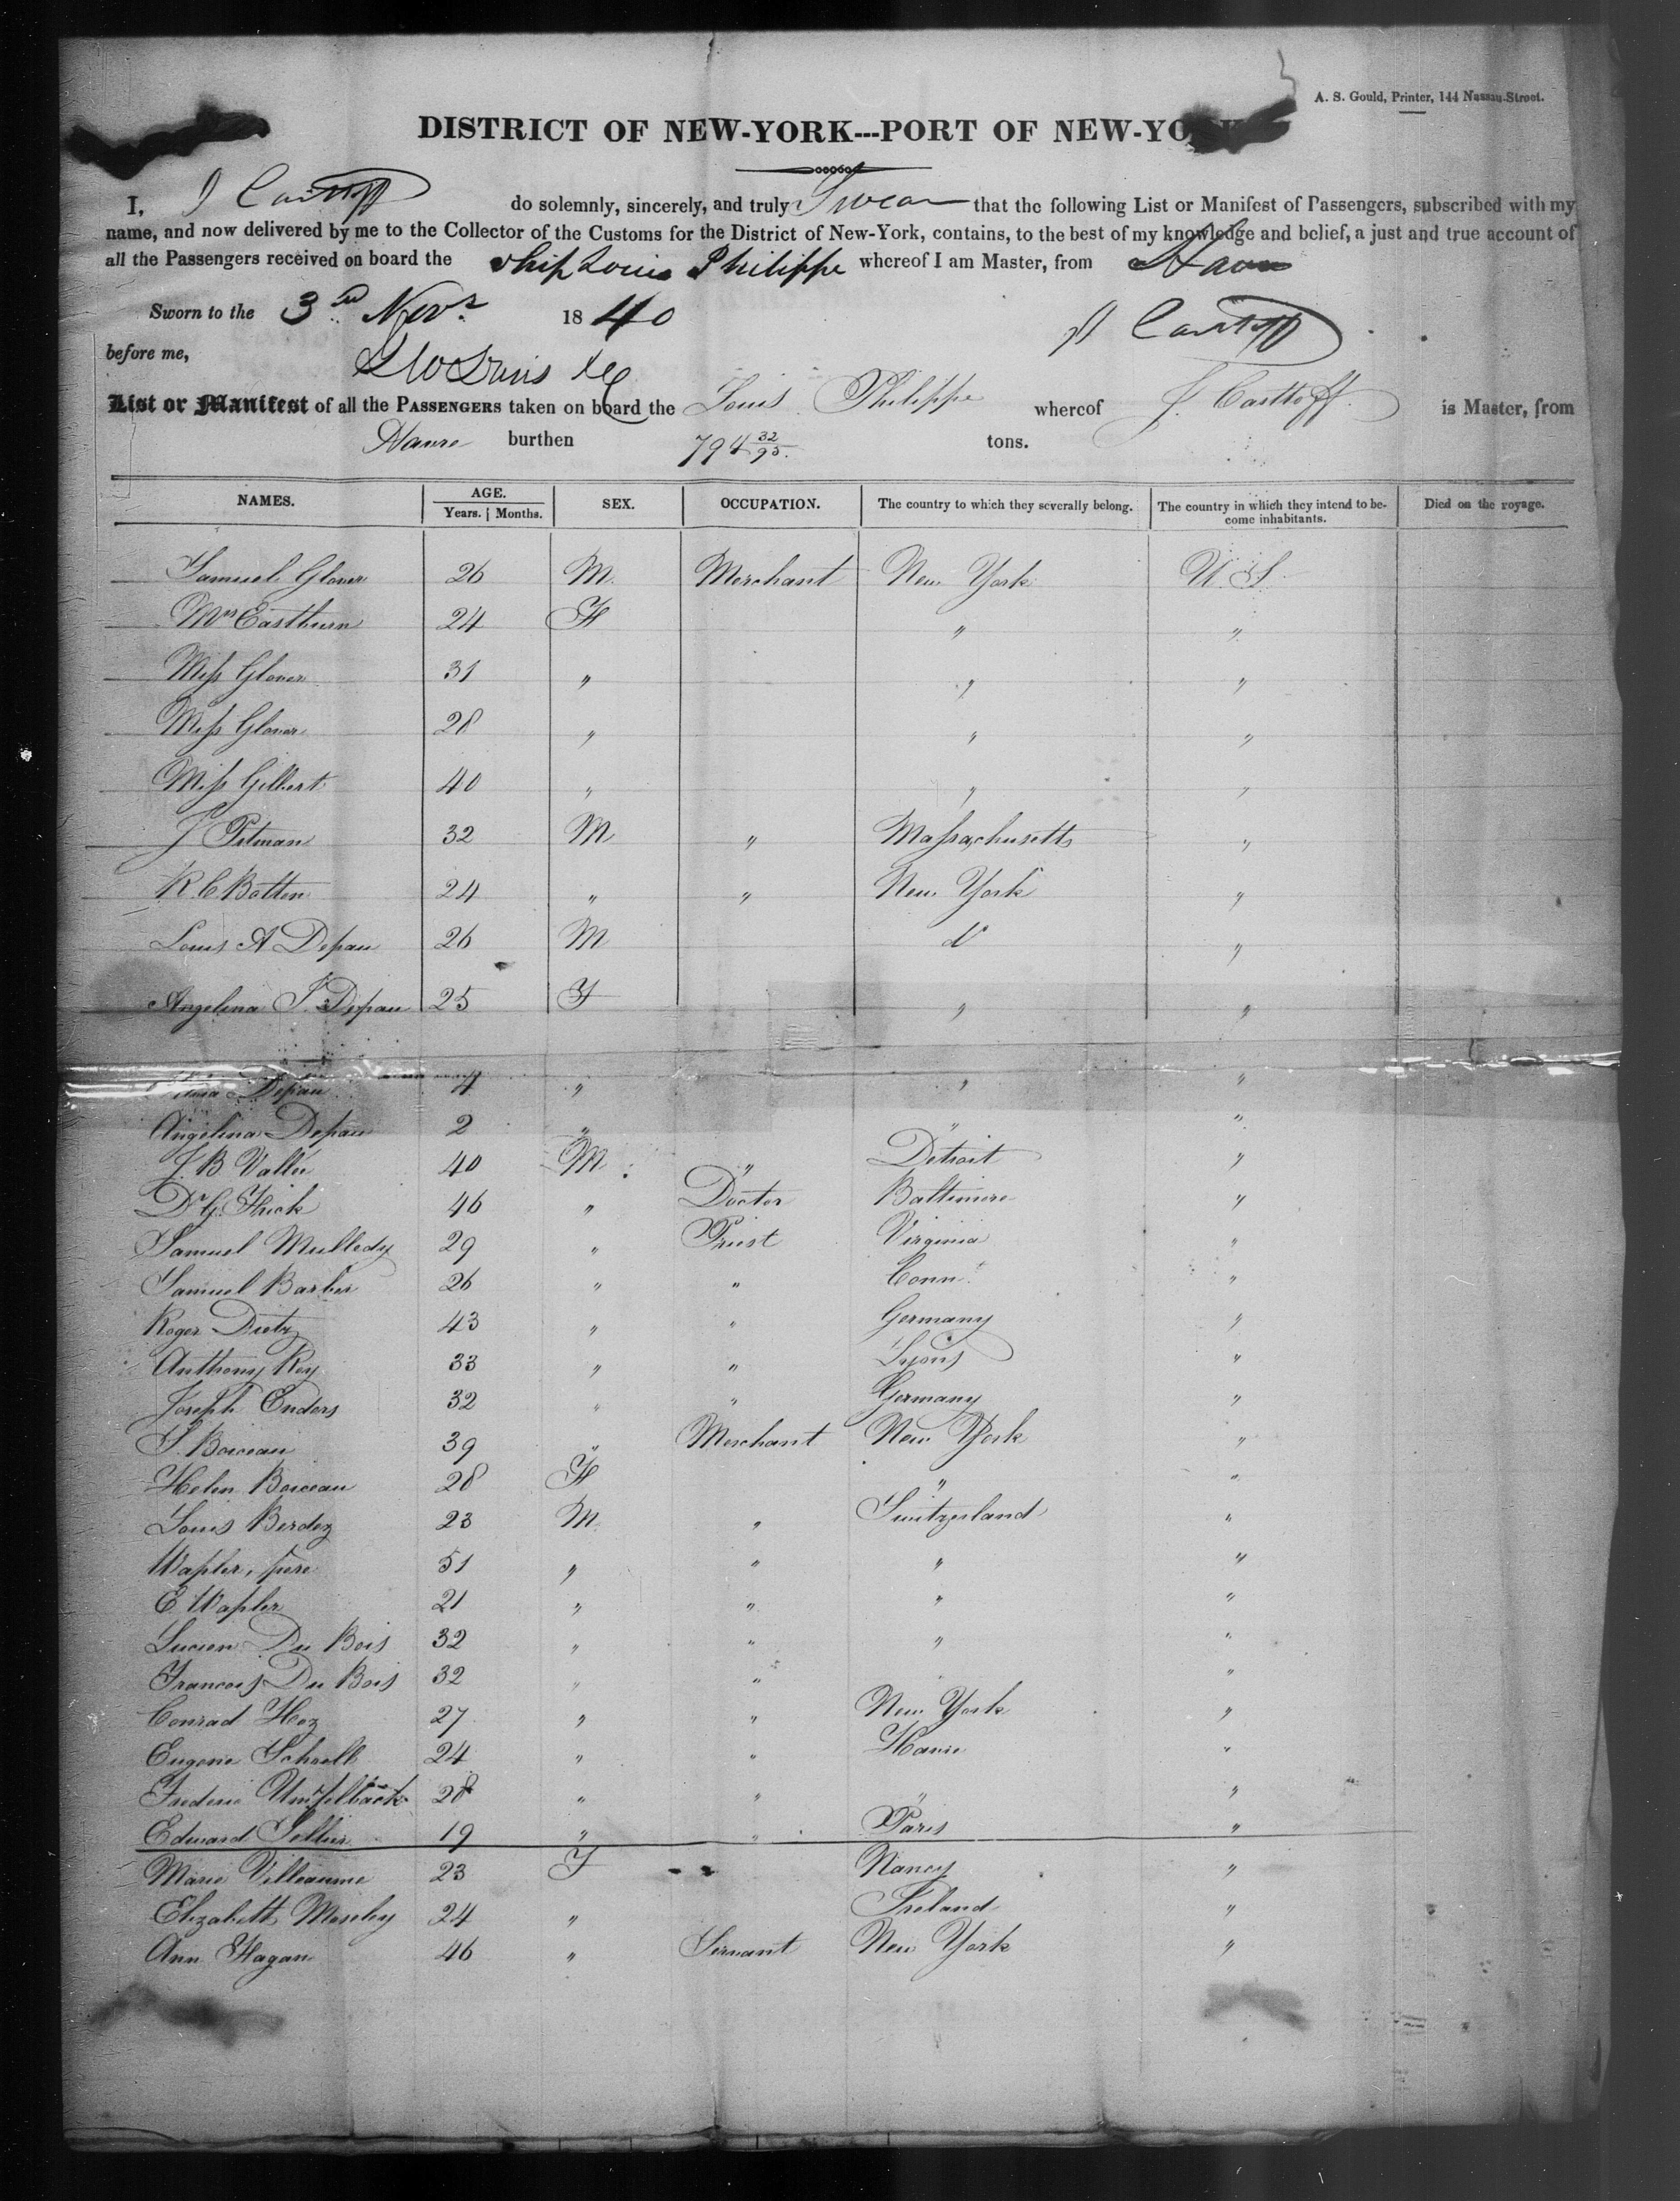 A. S. Gould, Printer, 144 Nassau-Street.
DISTRICT OF NEW-YORK---PORT OF NEW-YORK
I, J Castoff do solemnly, sincerely, and truly Swear that the following List or Manifest of Passengers, subscribed with my
name, and now delivered by me to the Collector of the Customs for the District of New-York, contains, to the best of my knowledge and belief, a just and true account of
all the Passengers received on board the Ship Louis Philippe whereof I am Master, from Havre
Sworn to the 3rd Novr. 1840 J Castoff
before me,
List or Manifest of all the PASSENGERS taken on board the Louis Philippe whereof J. Casttoff is Master, from
Havre burthen 794 32/95. tons.
NAMES. AGE. Years. Months. SEX. OCCUPATION. The country to which they severally belong. The country in which they intend to become inhabitants. Died on the voyage.
Samuel Glover 26 M. Merchant New York U. S.
Mrs Eastburn 24 F " "
Miss Glover 31 " " "
Miss Glover 28 " " "
Miss Gilbert 40 " " "
J Pitman 32 M " Massachusetts "
R. C Botten 24 " " New York "
Louis A Depau 26 M do "
Angelina T. Depau 25 F " "
Depau 4 " " "
Angelina Depau 2 " " "
J. B. Vallee 40 M " Detroit "
Dr G. Frick 46 " Doctor Baltimore "
Samuel Mulledy 29 " Priest Virginia "
Samuel Barber 26 " " Conn. "
Roger Dietz 43 " " Germany "
Anthony Rey 33 " " Lyons "
Joseph Enders 32 " " Germany "
S. Boiceau 39 " Merchant New York "
Helen Boiceau 28 F " "
Louis Berdez 23 M " Switzerland "
Wapler, pere 51 " " " "
E. Wapler 21 " " " "
Lucien Du Bois 32 " " " "
Francois Du Bois 32 " " "
Conrad Hoz 27 " " New York "
Eugene Schnell 24 " " Havre "
Frederic 28 " " " "
Edward Sellier 19 " " Paris "
Marie Villeaume 23 F Nancy "
Elizabeth Moseley 24 " Ireland "
Ann Hagan 46 " Servant New York "